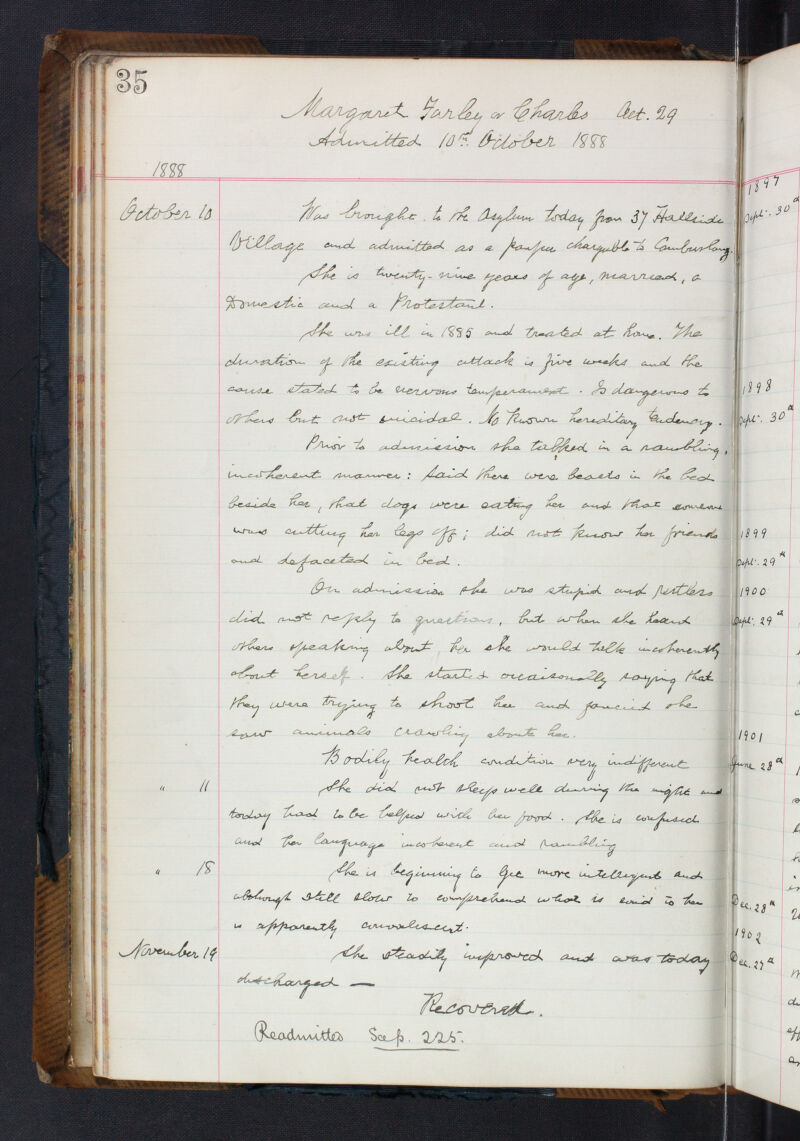 35
Margaret Farley or Charles Aet. 29
Admitted 10th October 1888
1888
October 10 Was brought to the Asylum today from 37 Hallside
Village and admitted as a pauper chargable to Cambuslang.
She is twenty-nine years of age, married, a
Domestic and a Protestant.
She was ill in 1885 and treated at home. The
duration of the existing attack is five weeks and the
cause stated to be nervous temperament. Is dangerous to
others but not suicidal. No known hereditary tendency.
Prior to admission she talked in a rambling,
incoherent manner: said there were beasts in the bed
beside her, that dogs were eating her and that someone
was cutting her legs off; did not know her friends
and defaceted in bed.
On admission she was stupid and restless
did not reply to questions, but when she heard
others speaking about her she would talk incoherently
about herself. She started occaisonally saying that
they were trying to shoot her and fancied she
saw animals crawling about her.
Bodily health condition very indifferent
" 11 She did not sleep well during the night and
today had to be helped with her food. She is confused
and her language incoherent and rambling
" 18 She is beginning to get more intelligent and
although still slow to comprehend what is said to her
is apparently convalescent.
November 19 She steadily improved and was today
discharged —
Recovered.
Readmitted See p. 225.
1897
Sept. 30th
1898
Sept. 30th
1899
Sept. 29th
1900
Sept. 29th
1901
June 28th
Dec. 28th
1902
Dec. 27th